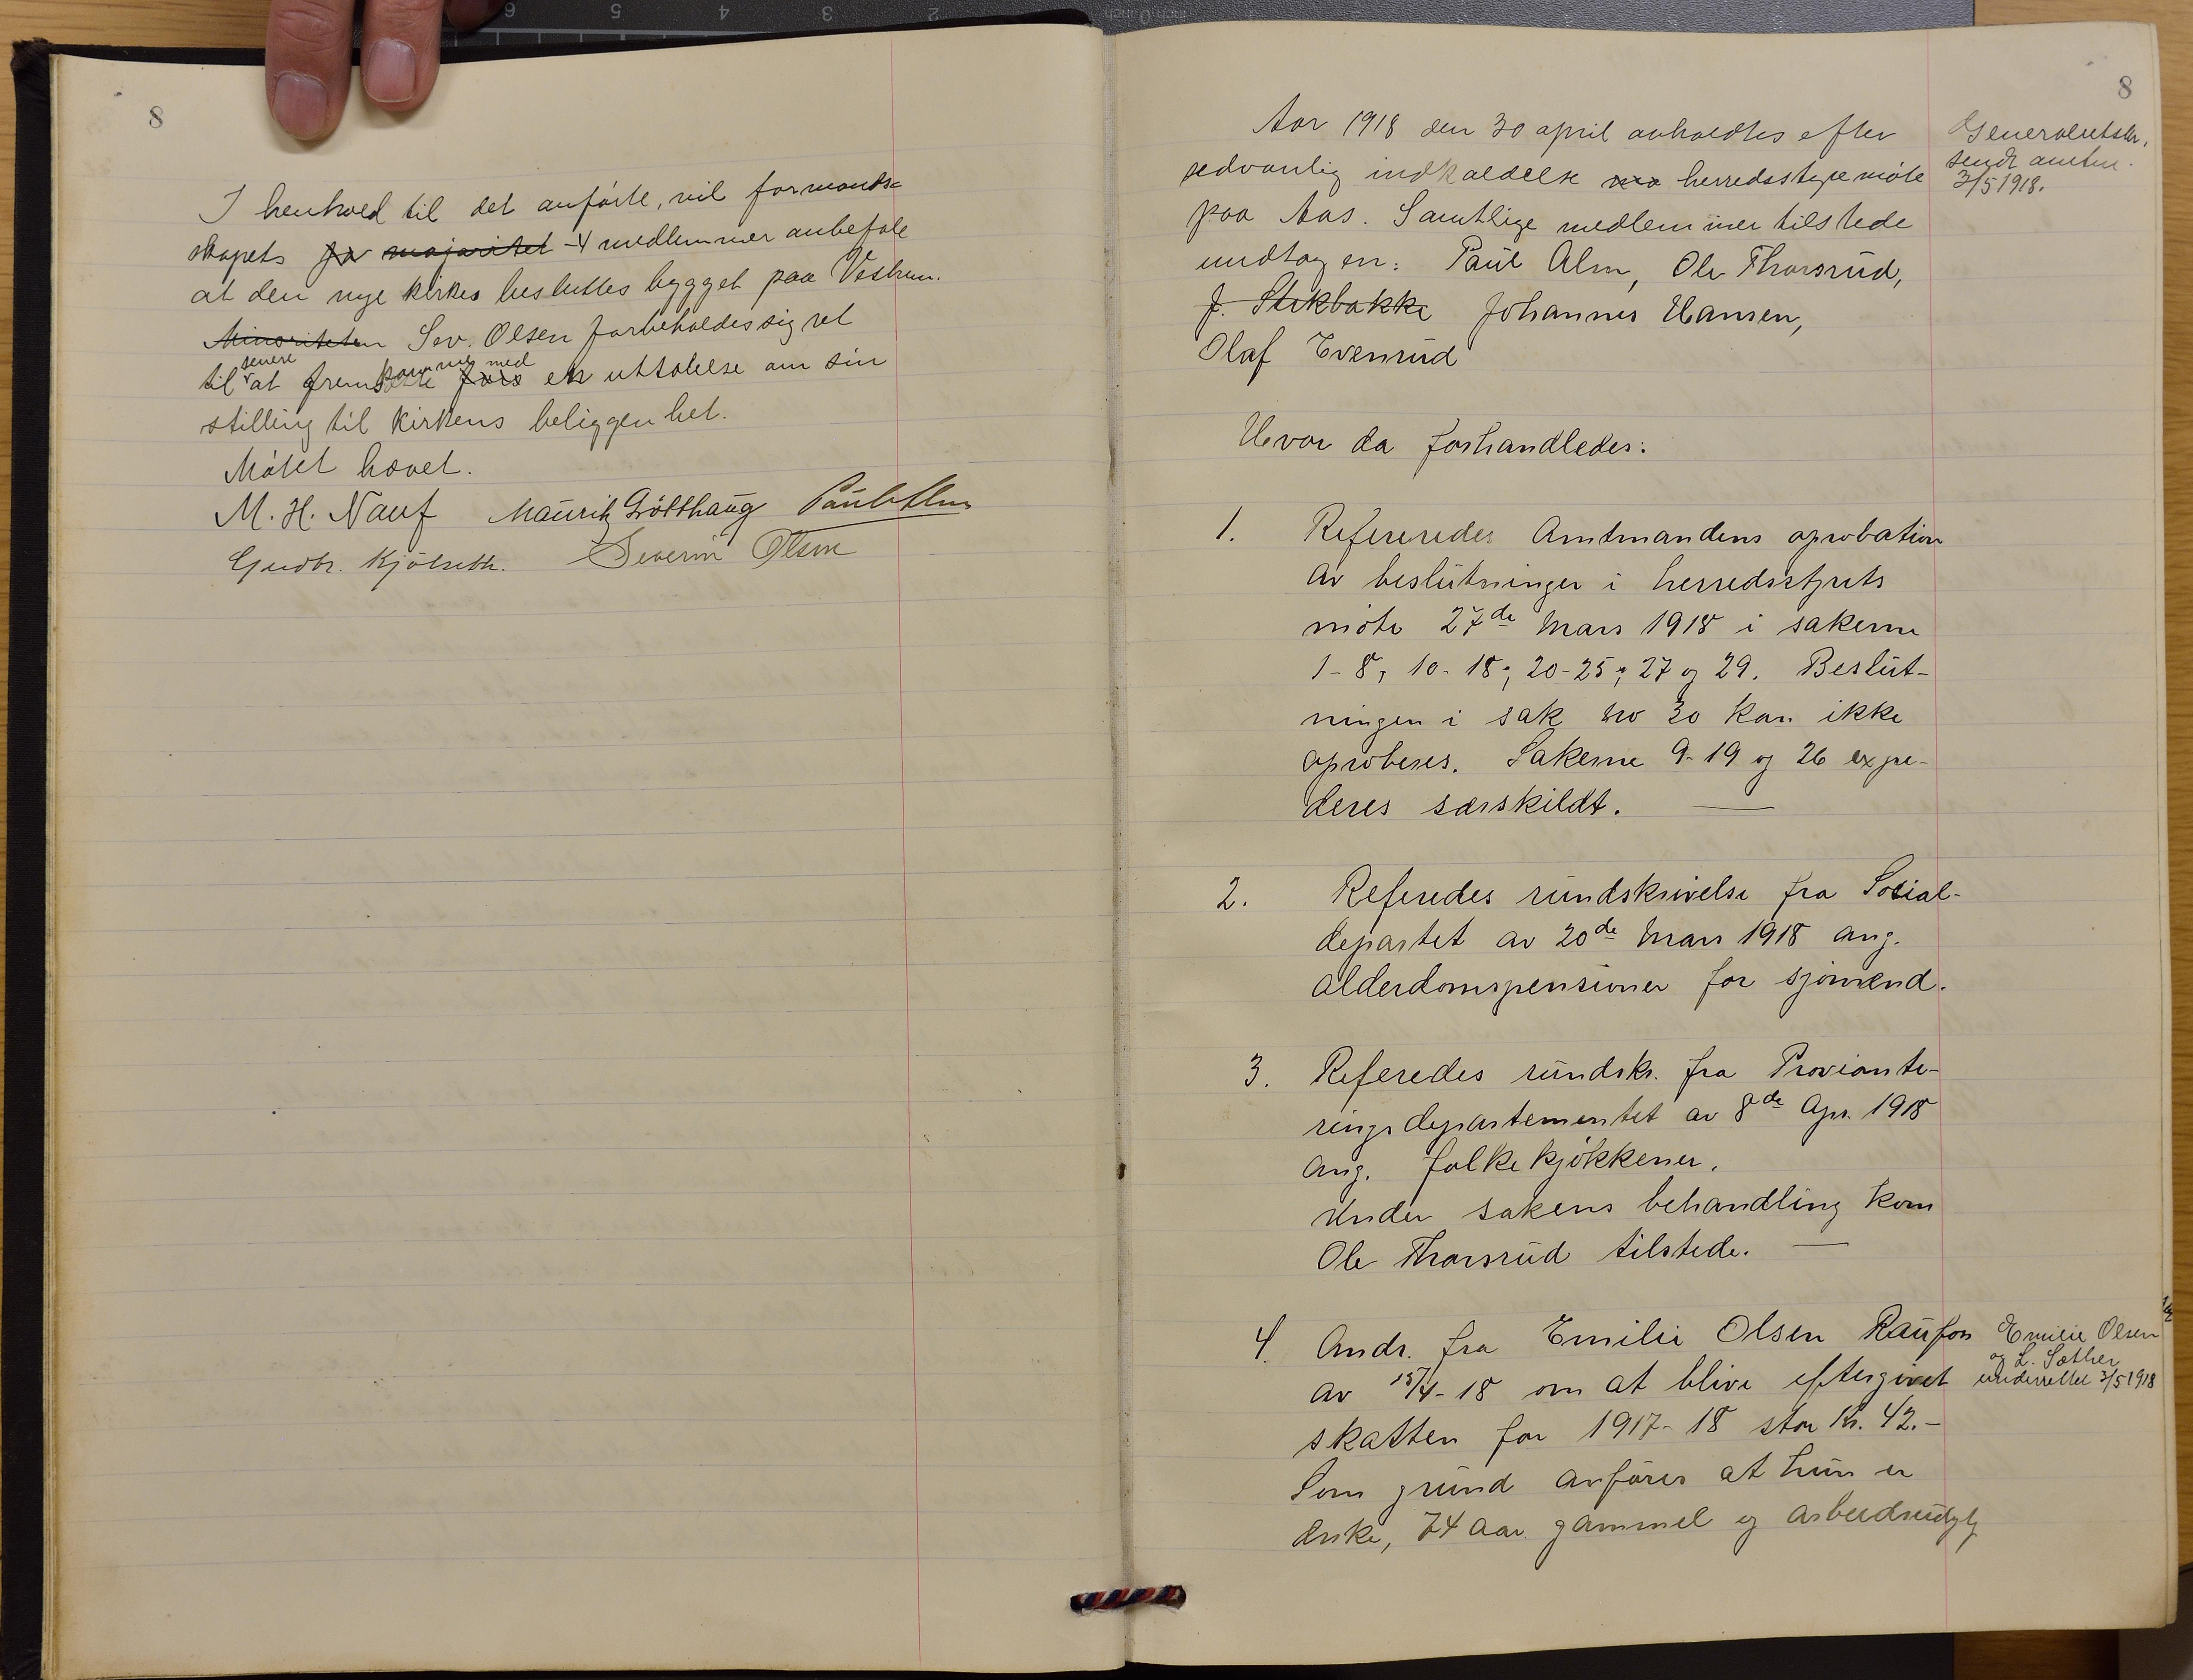 8
I henhold til det anførte, vil formands-
skapets fo majoritet -4 medlemmer anbefale
at den nye kirke besluttes bygget paa Vestrum.
Minoriteten Sev. Olsen forbeholdes sig ret
til senere at fremkomme med en uttalelse om sin
stilling til kirkens beliggenhet.
Møtet hævet.
M. H. Nauf Mauritz Grøtthaug Paul Alm
Gudbr. Kjølseth. Severin Olsen
8
Aar 1918 den 30 april avholdtes efter
sedvanlig indkaldelse herredsstyremøte
paa Aas. Samtlige medlemmer tilstede
undtagen: Paul Alm, Ole Thorsrud,
J. Stikbakke Johannes Hansen,
Olaf Evensrud
Generalutskr.
sendt amtm.
3/5 1918.
Hvor da forhandledes:
1. Refereredes Amtmandens aprobation
av beslutninger i herredsstyrets
møte 27de Mars 1918 i sakerne
1-8, 10-18, 20-25, 27 og 29. Beslut-
ningen i sak no 30 kan ikke
aproberes. Sakerne 9-19 og 26 expe-
deres særskildt.
2. Referedes rundskrivelse fra Social-
departet av 20de Mars 1918 ang.
alderdomspensioner for sjømænd.
3. Referedes rundskr. fra Proviante-
ringsdepartementet av 8de Apr. 1918
ang. folkekjøkkener.
Under sakens behandling kom
Ole Thorsrud tilstede.
4. Andr. fra Emilie Olsen Raufoss
av 15/4-18 om at blive eftergivet
skatten for 1917-18 stor Kr. 42.-
Som grund anføres at hun er
enke, 74 aar gammel og arbeidsudygtig
Emilie Olsen
og L. Sæther
underrettet 3/5 1918